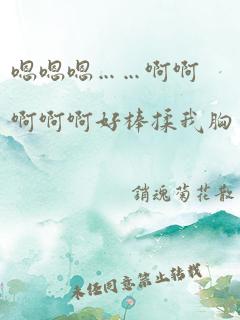 嗯嗯嗯……啊啊
啊啊啊好棒揉我胸
銷魂菊花散
未经同意禁止转载